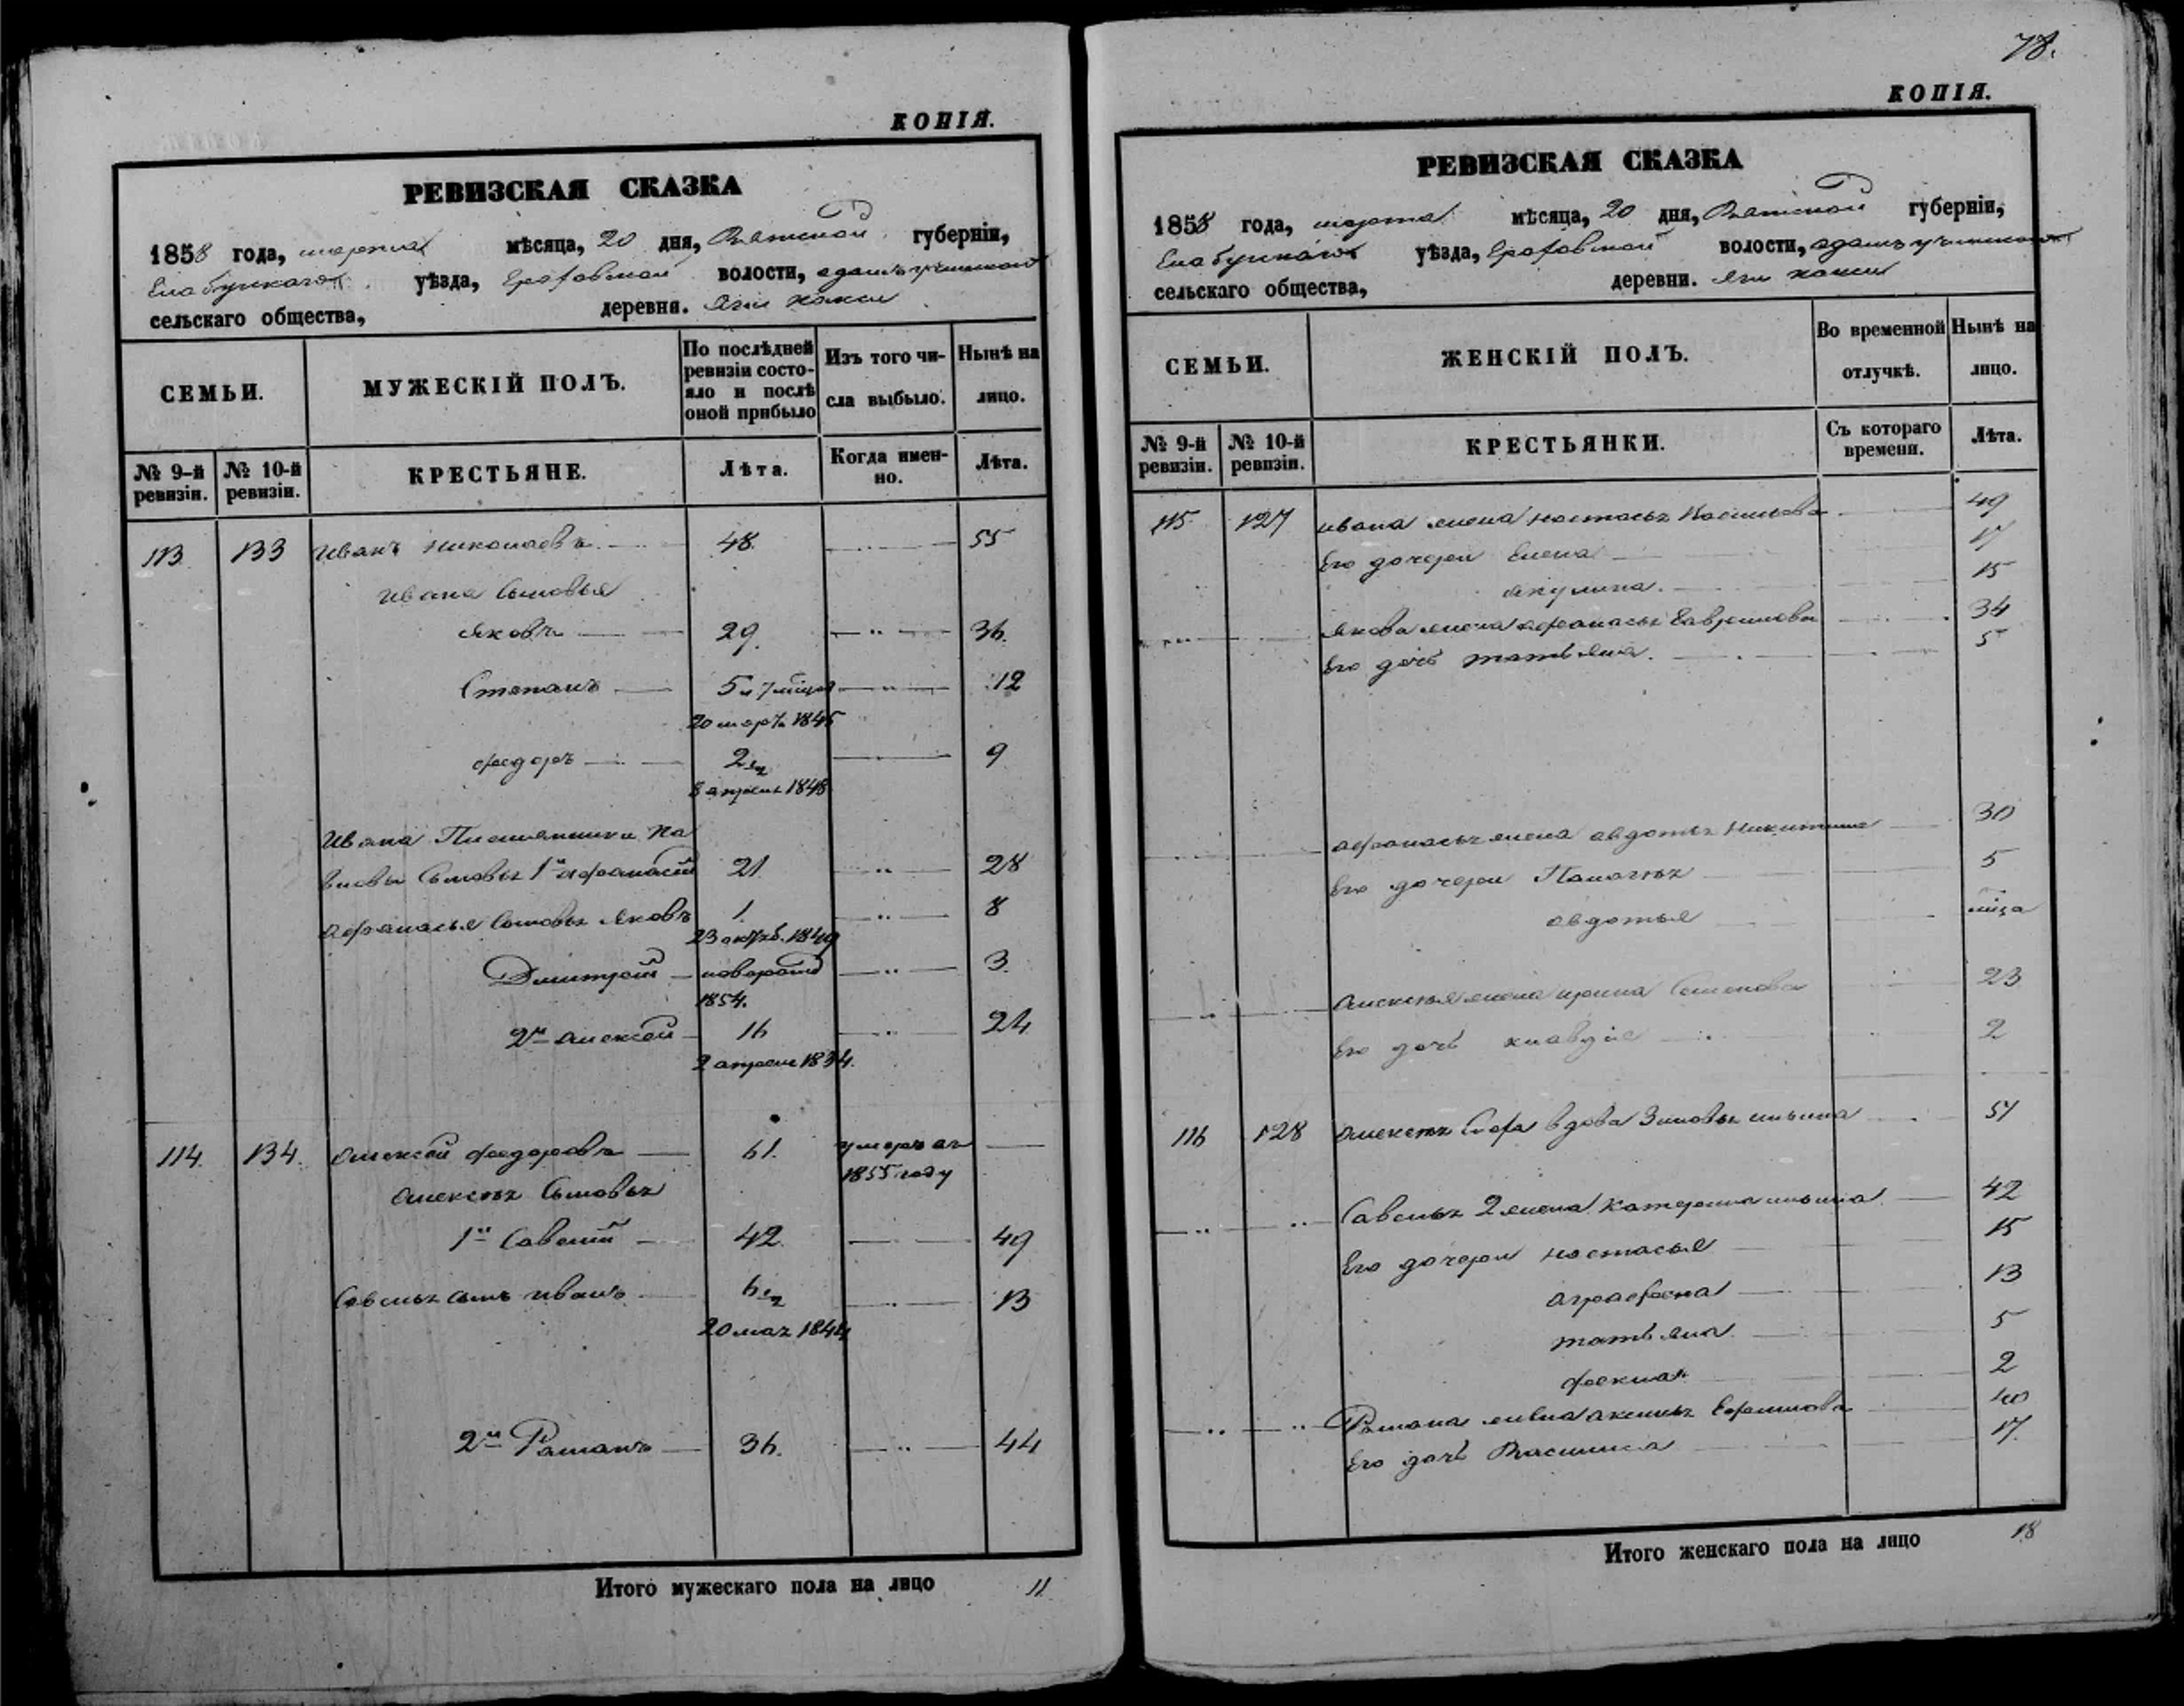 КОПІЯ.
РЕВИЗСКАЯ СКАЗКА
1858 года, марта мѣсяца, 20 дня, Вятской губерніи,
Елабужскаго уѣзда, волости,
сельскаго общества, деревни.
СЕМЬИ.
МУЖЕСКІЙ ПОЛЪ.
По послѣдней ревизіи состояло и послѣ оной прибыло
Изъ того числа выбыло.
Нынѣ на лицо.
№ 9-й ревизіи.
№ 10-й ревизіи.
КРЕСТЬЯНЕ.
Лѣта.
Когда именно.
Лѣта.
113 133 Иванъ Николаевъ 48 55
Ивана сыновья
Яковъ 29 36
Степанъ 5 12
20 1845
Федоръ 2 9
8 апреля 1848
Ивана Па
сыновья 1й Афанасій 21 28
Афанасья сыновья Яковъ 1 8
23 октяб. 1849
Дмитрей 3
1854.
2й Алексей 16 24
2 апреля 1834.
114 134 Алексей Федоровъ 61 умеръ въ
1855 году
Алексея сыновья
1й Савелій 42 49
Савелья сынъ Иванъ 6 13
20 мая 1844
2й Раманъ 36 44
Итого мужескаго пола на лицо 11
78.
КОПІЯ.
РЕВИЗСКАЯ СКАЗКА
1858 года, марта мѣсяца, 20 дня, Вятской губерніи,
Елабужскаго уѣзда, волости,
сельскаго общества, деревни.
СЕМЬИ.
ЖЕНСКІЙ ПОЛЪ.
Во временной отлучкѣ.
Нынѣ на лицо.
№ 9-й ревизіи.
№ 10-й ревизіи.
КРЕСТЬЯНКИ.
Съ котораго времени.
Лѣта.
115 127 Ивана жена Настасья Васильева 49
Его дочери Елена 17
Акулина 15
Якова жена 34
Его дочь Татьяна 5
Афанасья жена Авдотья Никитина 30
Его дочери 5
Авдотья
Алексея жена Ирина Семенова 23
Его дочь Клавдіе 2
116 128 Алексея вдова Зиновья Ильина 57
Савелья 2 жена Катерина Ильина 42
Его дочери Настасья 15
Аграфена 13
Татьяна 5
Фекла 2
Рамана жена Аксинья Ефимова 40
Его дочь Васлиса 17
Итого женскаго пола на лицо 18